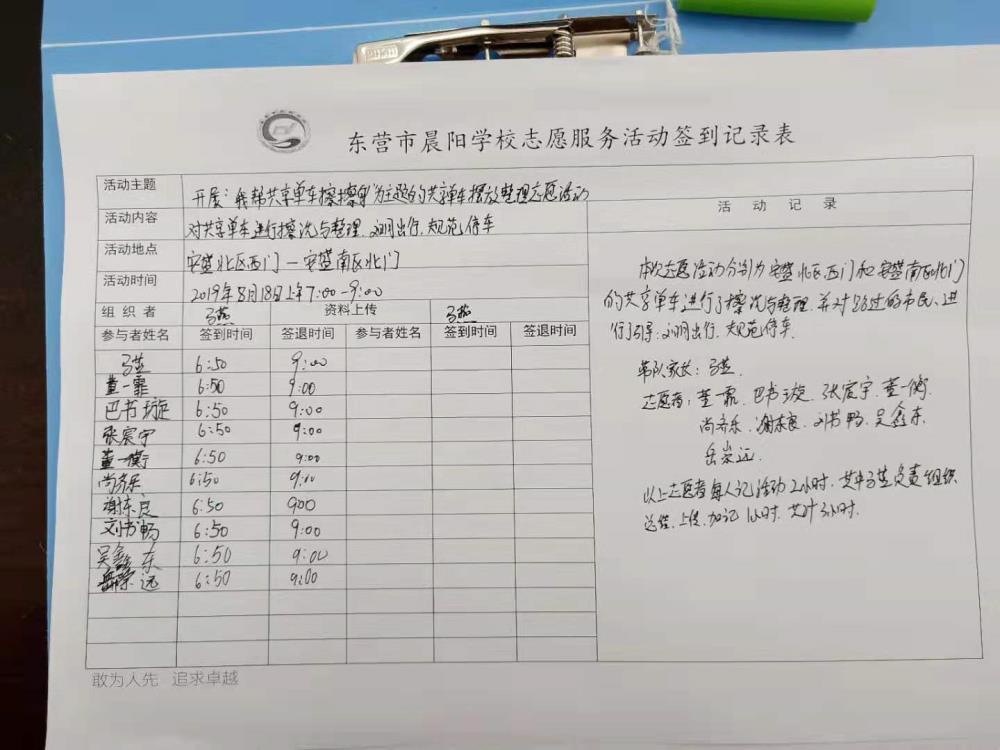 东营市晨阳学校志愿服务活动签到记录表
活动主题 开展:我帮共享单车擦擦身为主题的共享单车摆放整理志愿活动
活动内容 对共享单车进行擦洗与整理,文明出行,规范停车
活动地点 安盛北区西门—安盛南区北门
活动时间 2019年8月18日上午7:00-9:00
组织者 马燕 资料上传 马燕
参与者姓名 签到时间 签退时间 参与者姓名 签到时间 签退时间
马燕 6:50 9:00
董一霏 6:50 9:00
巴书璇 6:50 9:00
张宸宁 6:50 9:00
董一衡 6:50 9:00
尚齐乐 6:50 9:00
谢东良 6:50 900
刘书畅 6:50 9:00
吴鑫东 6:50 9:00
岳崇远 6:50 9:00
活动记录
本次志愿活动分别为安盛北区西门和安盛南区北门
的共享单车进行了擦洗与整理,并对路过的市民,进
行引导,文明出行,规范停车.
带队家长:马燕.
志愿者:董一霏.巴书璇.张宸宁.董一衡.
尚齐乐.谢东良.刘书畅.吴鑫东.
岳崇远.
以上志愿者每人记活动2小时.其中马燕负责组织
总结.上传.加记1小时.共计3小时.
敢为人先 追求卓越